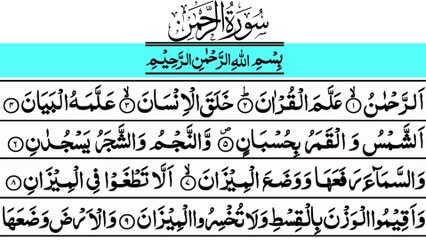 سُوْرَةُ الرَّحْمٰن
بِسْمِ اللّٰهِ الرَّحْمٰنِ الرَّحِيْمِ
اَلرَّحْمٰنُ ۙ﴿۱﴾ عَلَّمَ الْقُرْاٰنَ ؕ﴿۲﴾ خَلَقَ الْاِنْسَانَ ۙ﴿۳﴾ عَلَّمَهُ الْبَيَانَ ﴿۴﴾
اَلشَّمْسُ وَ الْقَمَرُ بِحُسْبَانٍ ۪﴿۵﴾ وَّالنَّجْمُ وَالشَّجَرُ يَسْجُدٰنِ ﴿۶﴾
وَالسَّمَآءَ رَفَعَهَا وَوَضَعَ الْمِيْزَانَ ۙ﴿۷﴾ اَلَّا تَطْغَوْا فِي الْمِيْزَانِ ﴿۸﴾
وَاَقِيْمُوا الْوَزْنَ بِالْقِسْطِ وَلَا تُخْسِرُوا الْمِيْزَانَ ﴿۹﴾ وَالْاَرْضَ وَضَعَهَا